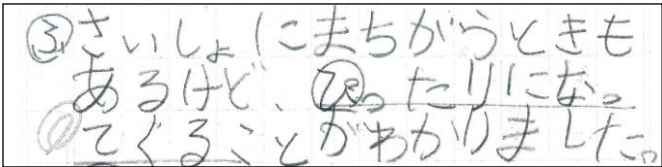 ③さいしょにまちがうときも
あるけど、ぴったりになっ
てくることがわかりました。